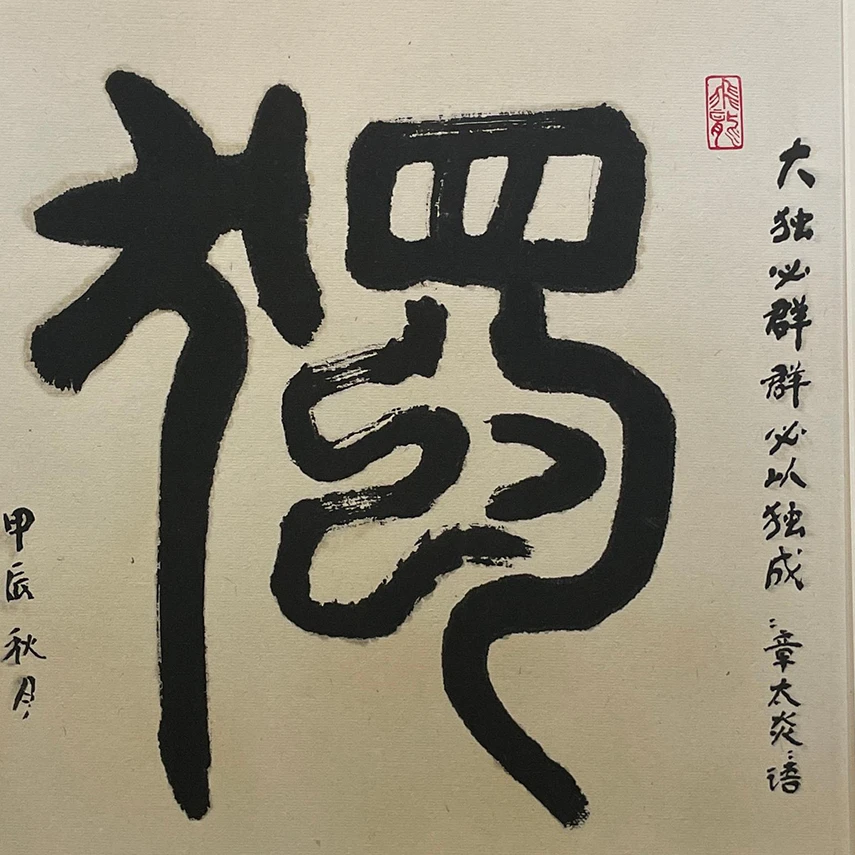 飛龍
大独必群群必以独成 章太炎语
獨
甲辰秋月